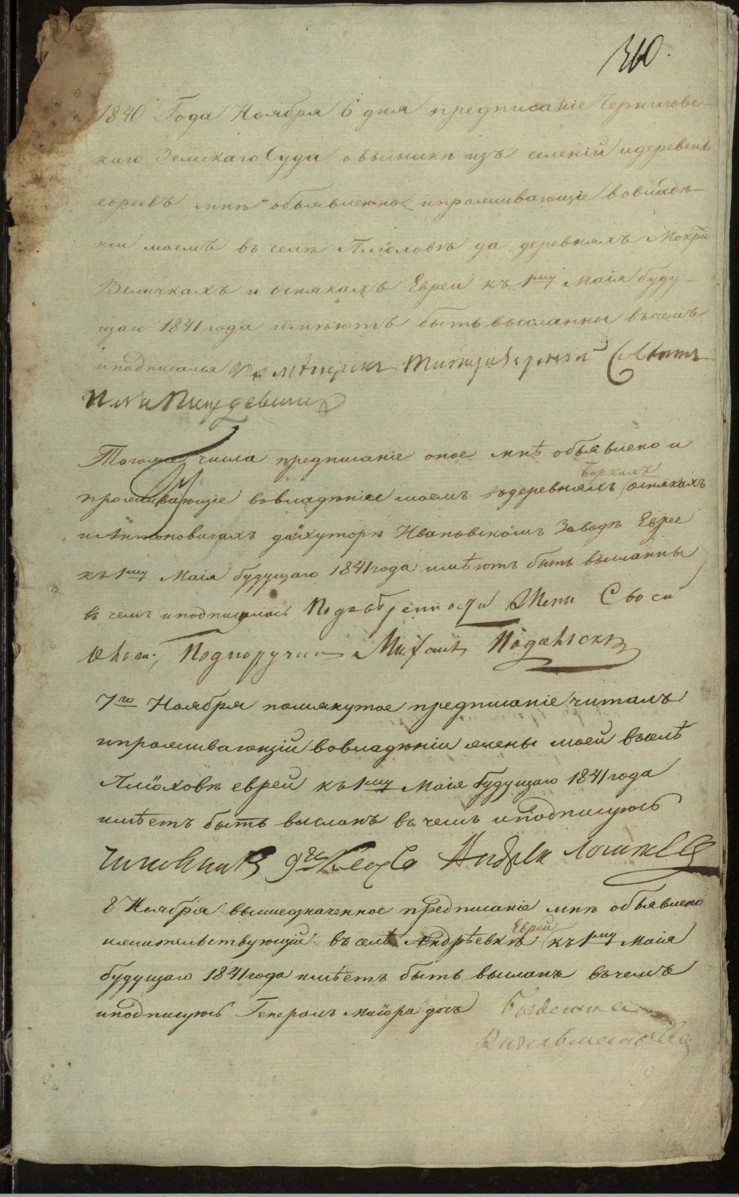 1840 Года Ноября 6 дня предписаніе Чернигов-
скаго Земскаго Суда о высылкѣ изъ селеній и деревень
евреевъ мнѣ объявлено и проживающіе во владѣ-
ніи моемъ въ селѣ да деревняхъ
Величкахъ и Оснякахъ Евреи къ 1му Маія буду-
щаго 1841 года имѣютъ быть высланны въ чемъ
и подписалъ
Тогожъ числа предписаніе оное мнѣ объявлено и
проживающіе во владѣніе моемъ въ деревняхъ Боркахъ Оснякахъ
и Антоновичахъ да хуторѣ Ивановскомъ Заводѣ Евреи
къ 1му Маія будущаго 1841 года имѣютъ быть высланны
въ чемъ и подписалсь По довѣренности Жены Своей
Подпоручикъ
7го Ноября помянутое предписаніе читалъ
и проживающій во владѣніи жены моей въ селѣ
еврей къ 1му Маія будущаго 1841 года
имѣетъ быть высланъ въ чемъ и подписуюсь
Чиновникъ 9го Класса Андрей
8 Ноября вышеозначенное предписаніе мнѣ объявлено
и жительствующій въ селѣ Андрѣевкѣ Еврей къ 1му Маія
будущаго 1841 года имѣетъ быть высланъ въ чемъ
и подписуюсь Генералъ маіора дочь